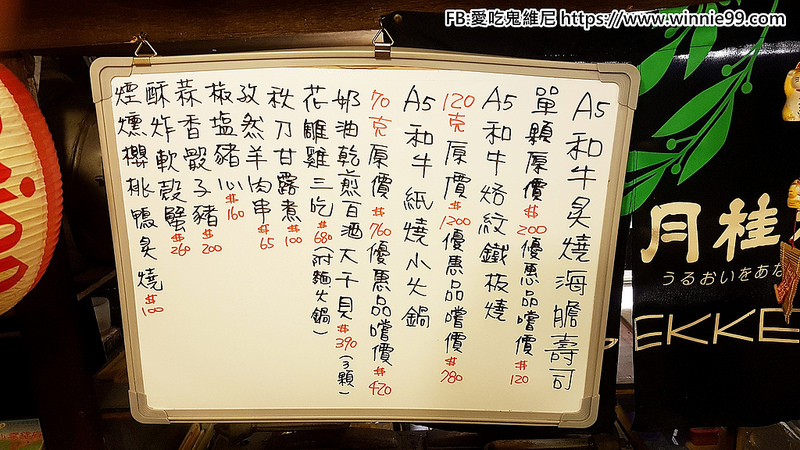 FB:愛吃鬼維尼 https://www.winnie99.com
A5和牛炙燒海膽壽司
單顆原價$200優惠品嚐價$120
A5和牛烙紋鐵板燒
120克原價$1200優惠品嚐價$780
A5和牛紙燒小火鍋
70克原價$760優惠品嚐價$420
奶油乾煎百酒大干貝$390(3顆)
花雕雞三吃$680(附麵火鍋)
秋刀甘露煮$100
孜然羊肉串$65
椒塩豬心$160
蒜香骰子豬$200
酥炸軟殼蟹$260
煙燻櫻桃鴨炙燒$100
月桂
うるおいをあな
EKKE